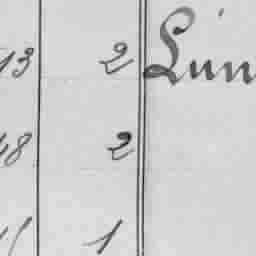 13 2 Lun
48 2
1